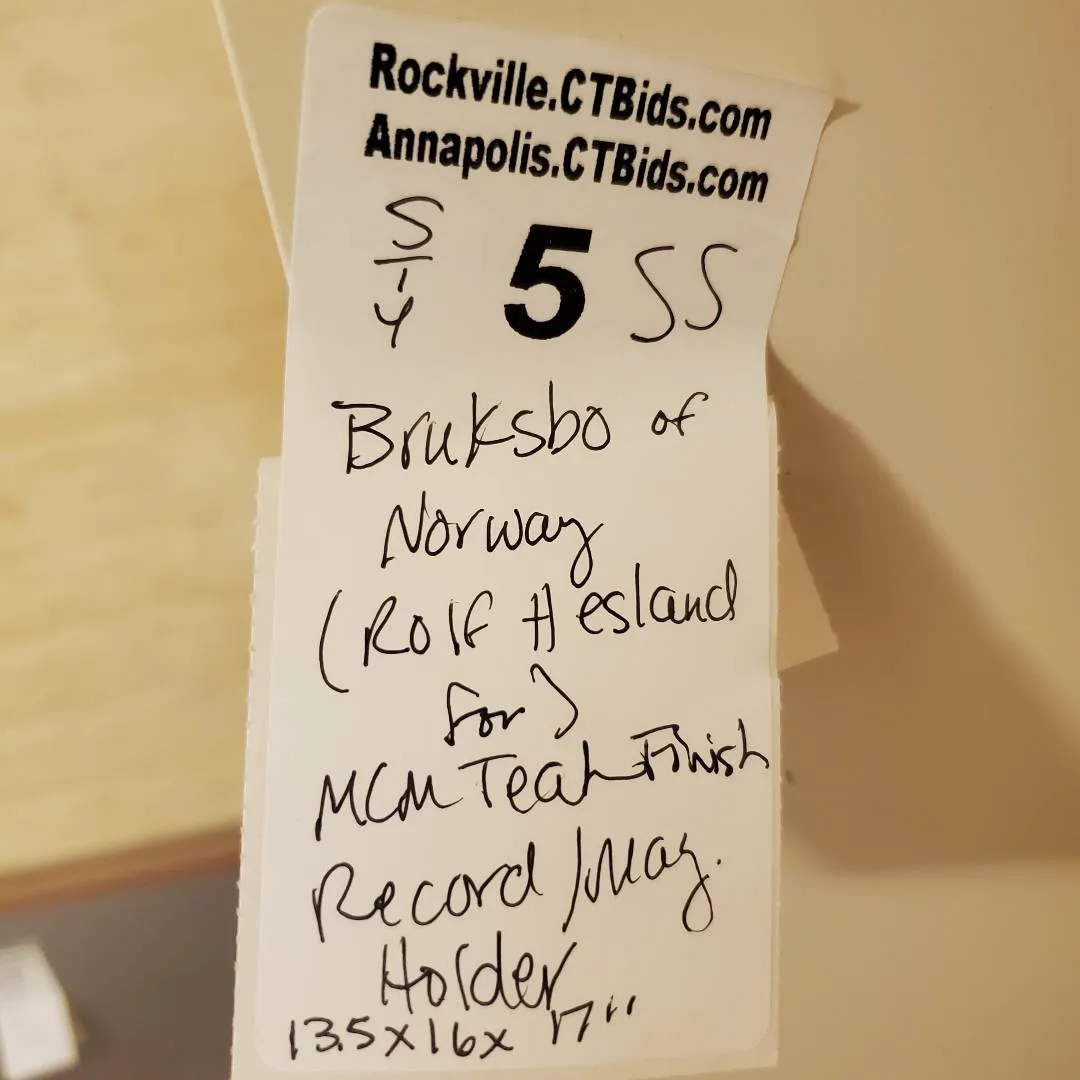 Rockville.CTBids.com
Annapolis.CTBids.com
S
5 SS
Y
Bruksbo of
Norway
(Rolf Hesland
for)
MCM Teak Finish
Record/Mag.
Holder
13.5 x 16 x 17"